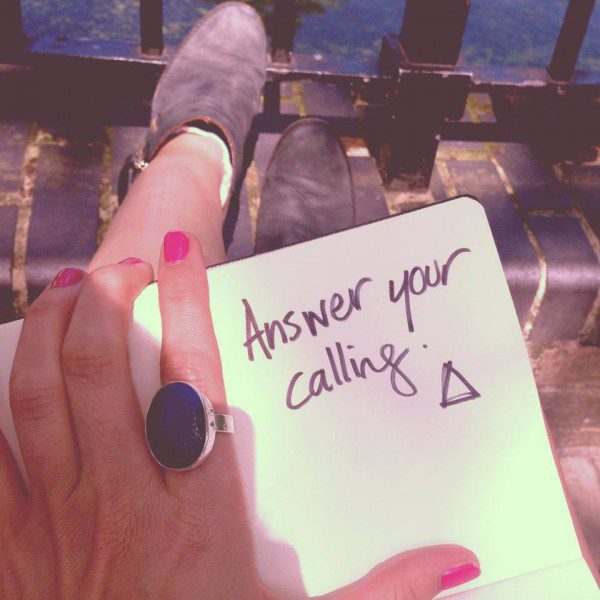 Answer your
calling.